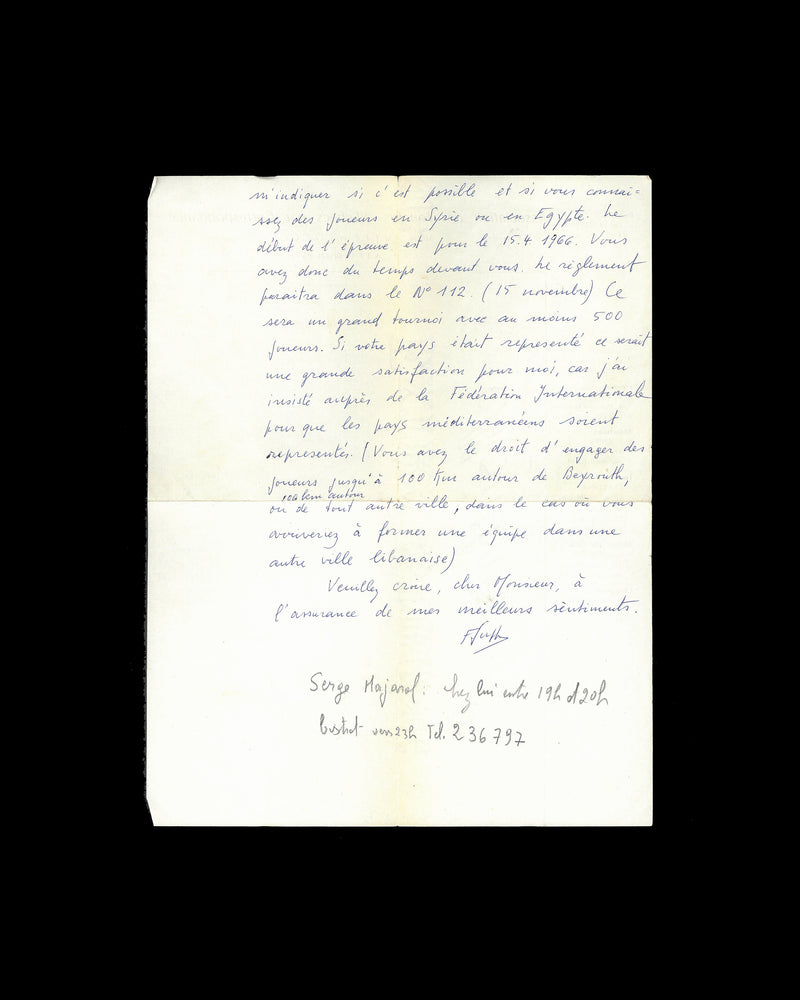 m'indiquer si c'est possible et si vous connai-
ssez des joueurs en Syrie ou en Egypte. Le
début de l'épreuve est pour le 15.4 1966. Vous
avez donc du temps devant vous. Le règlement
paraitra dans le N° 112. (15 novembre) Ce
sera un grand tournoi avec au moins 500
joueurs. Si votre pays était representé ce serait
une grande satisfaction pour moi, car j'ai
insisté auprès de la Fédération Internationale
pour que les pays méditerranéens soient
representés. (Vous avez le droit d'engager des
joueurs jusqu'à 100 Km autour de Beyrouth,
100 km autour
ou de tout autre ville, dans le cas où vous
à former une équipe dans une
autre ville libanaise)
Veuillez croire, cher Monsieur, à
l'assurance de mes meilleurs sentiments.
Serge chez lui entre 19h et 20h
vers 23h Tel. 236797